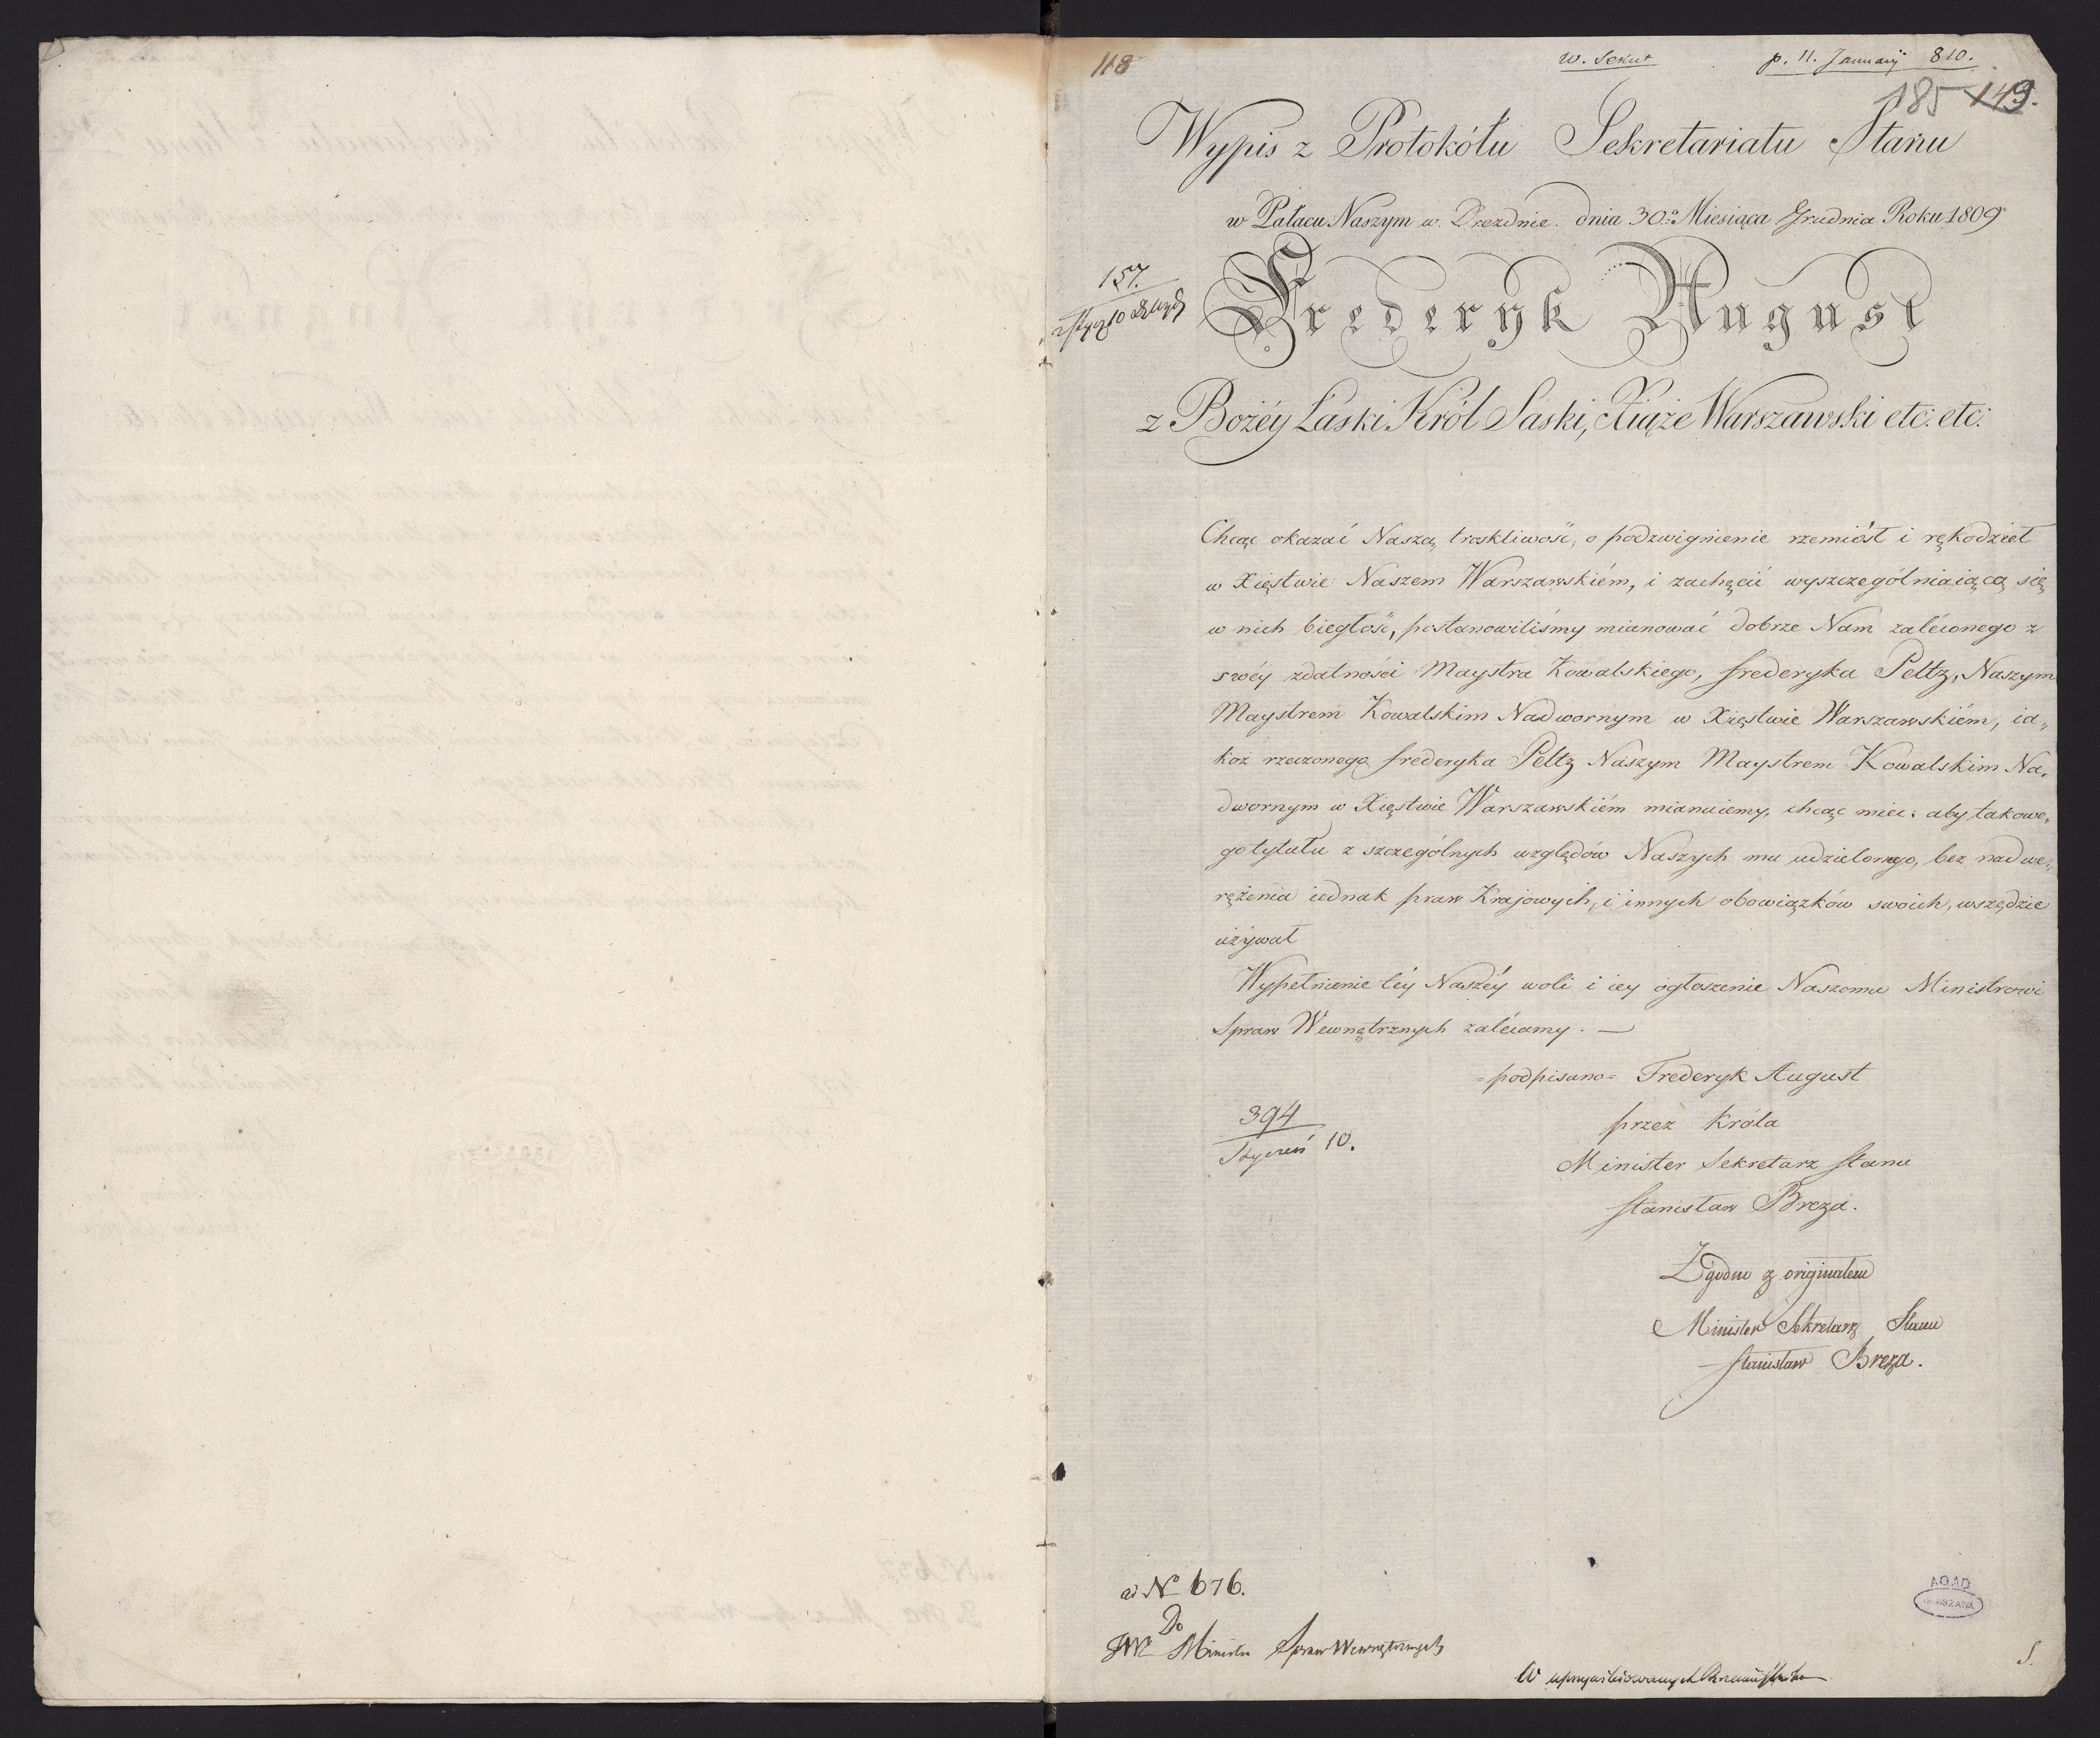 118
p. 11. Januarij 810.
185 149.
Wypis z Protokółu Sekretariatu Stanu
w Pałacu Naszym w Dreźdnie. dnia 30.º Miesiąca Grudnia Roku 1809
157.
Frederyk August
z Bożéy Łaski Król Saski, Xiąże Warszawski etc: etc:
Chcąc okazać Naszą troskliwość, o podzwignienie rzemiósł i rękodzieł
w Xięstwie Naszem Warszawskiém, i zachęcić wyszczególniaiącą się
w nich biegłość, postanowiliśmy mianować dobrze Nam zaleconego z
swéy zdatności Maystra Kowalskiego, Frederyka Peltz, Naszym
Maystrem Kowalskim Nadwornym w Xięstwie Warszawskiém, ia„
koż rzeczonego Frederyka Peltz Naszym Maystrem Kowalskim Na„
dwornym w Xięstwie Warszawskiém mianuiemy, chcąc mieć: aby takowe„
go tytułu z szczególnych względów Naszych mu udzielonego, bez nadwe„
rężenia iednak praw Krajowych, i innych obowiązków swoich, wszędzie
używał
Wypełnienie téy Naszéy woli i iey ogłoszenie Naszemu Ministrowi
Spraw Wewnętrznych zalécamy. —
=podpisano= Frederyk August
przez Króla
394
Styczeń 10.
Minister Sekretarz Stanu
Stanisław Breza.
Zgodno z originałem
Minister Sekretarz Stanu
Stanisław Breza.
ad Nº 676.
Do
JW Ministra Spraw Wewnętrznych
AGAD
WARSZAWA